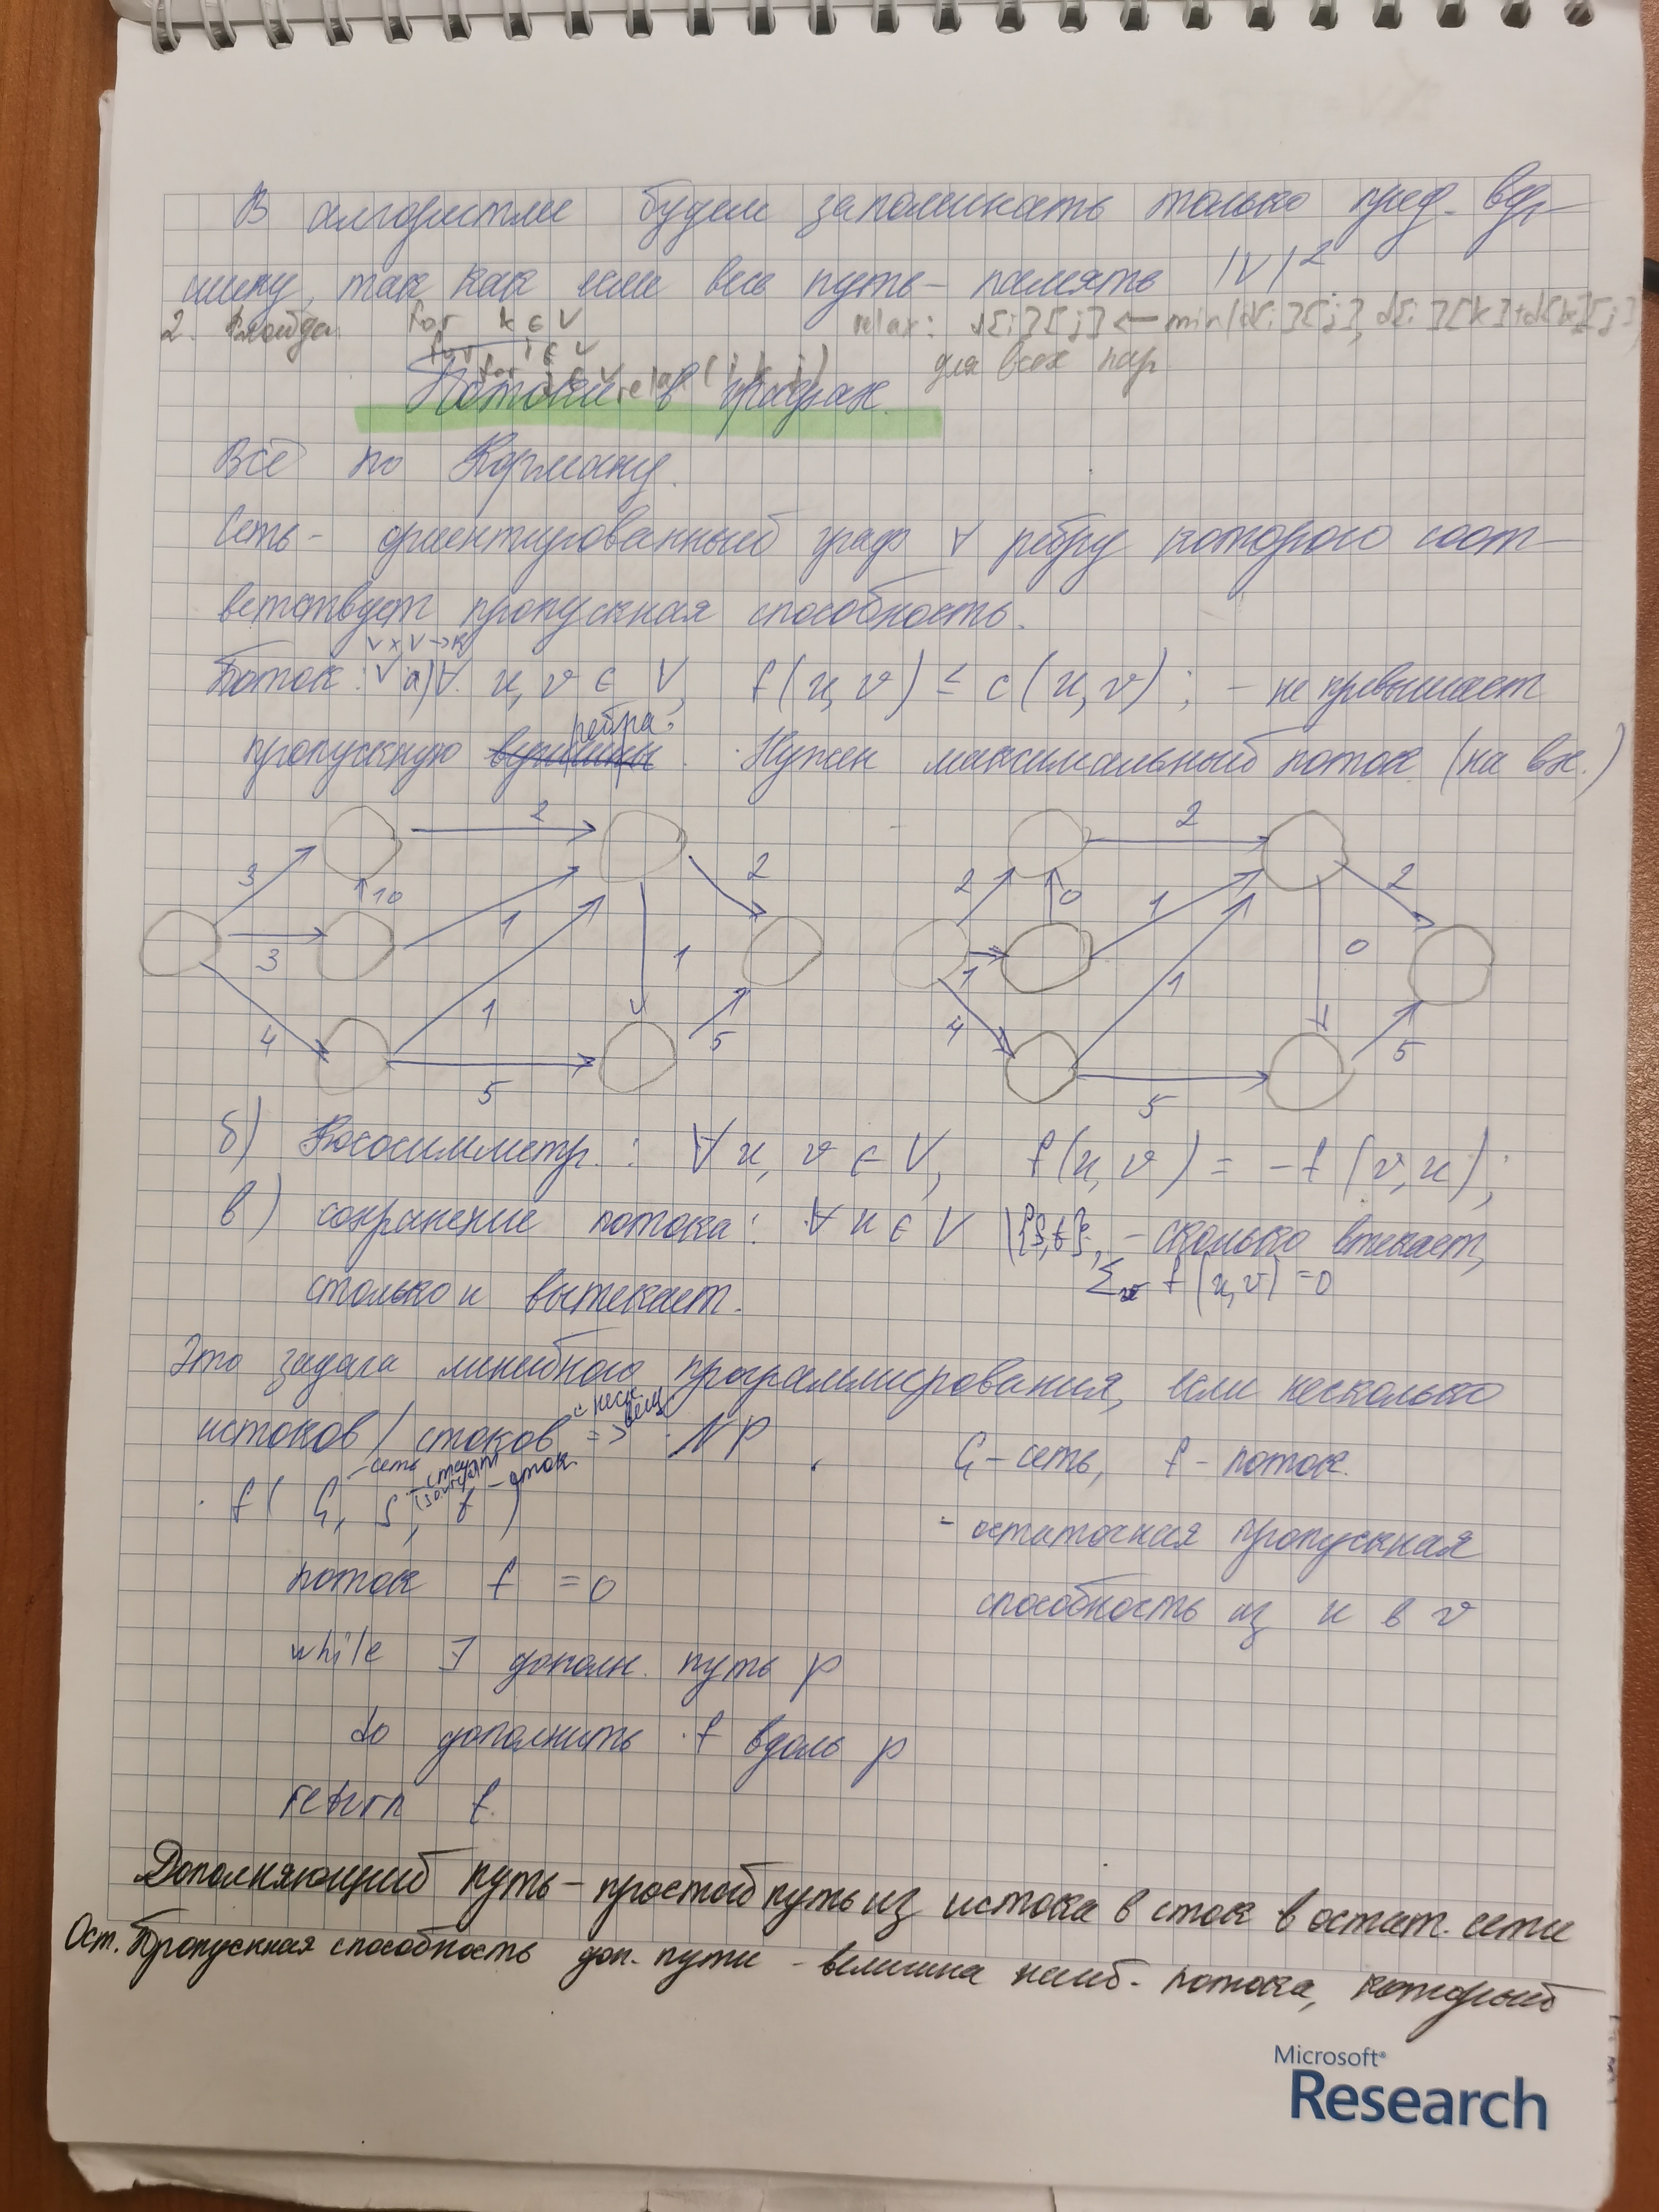 В алгоритме будем запоминать только пред. вер-
шину, так как если весь путь - память |V|²
2. Флойда for k ∈ V relax: d[i][j] ← min(d[i][j], d[i][k]+d[k][j])
for i ∈ V для всех пар
for j ∈ V relax(i, k, j)
Потоки в графах.
Всё по Корману.
Сеть - ориентированный граф ∀ ребру которого соот-
ветствует пропускная способность.
V × V → R
Поток: а) ∀ u, v ∈ V, f(u, v) ≤ c(u, v); - не превышает
ребра.
пропускную вершины. Нужен максимальный поток (на вх.)
2 2
3 10 2 2 0 1 2
3 1 1 1 1 0
4 1 5 4 5
5 5
б) Кососимметр.: ∀ u, v ∈ V, f(u, v) = -f(v, u);
в) сохранение потока: ∀ u ∈ V \{s,t}, - сколько втекает,
столько и вытекает. Σv f(u, v) = 0
Это задача линейного программирования, если несколько
истоков / стоков => NP
G - сеть, f - поток.
- сеть - сток
f( G, s, t )
- остаточная пропускная
поток f = 0
способность из u в v
while ∃ дополн. путь p
do дополнить f вдоль p
return f.
Дополняющий путь - простой путь из истока в сток в остат. сети
Ост. Пропускная способность доп. пути - величина наиб. потока, который
Microsoft®
Research